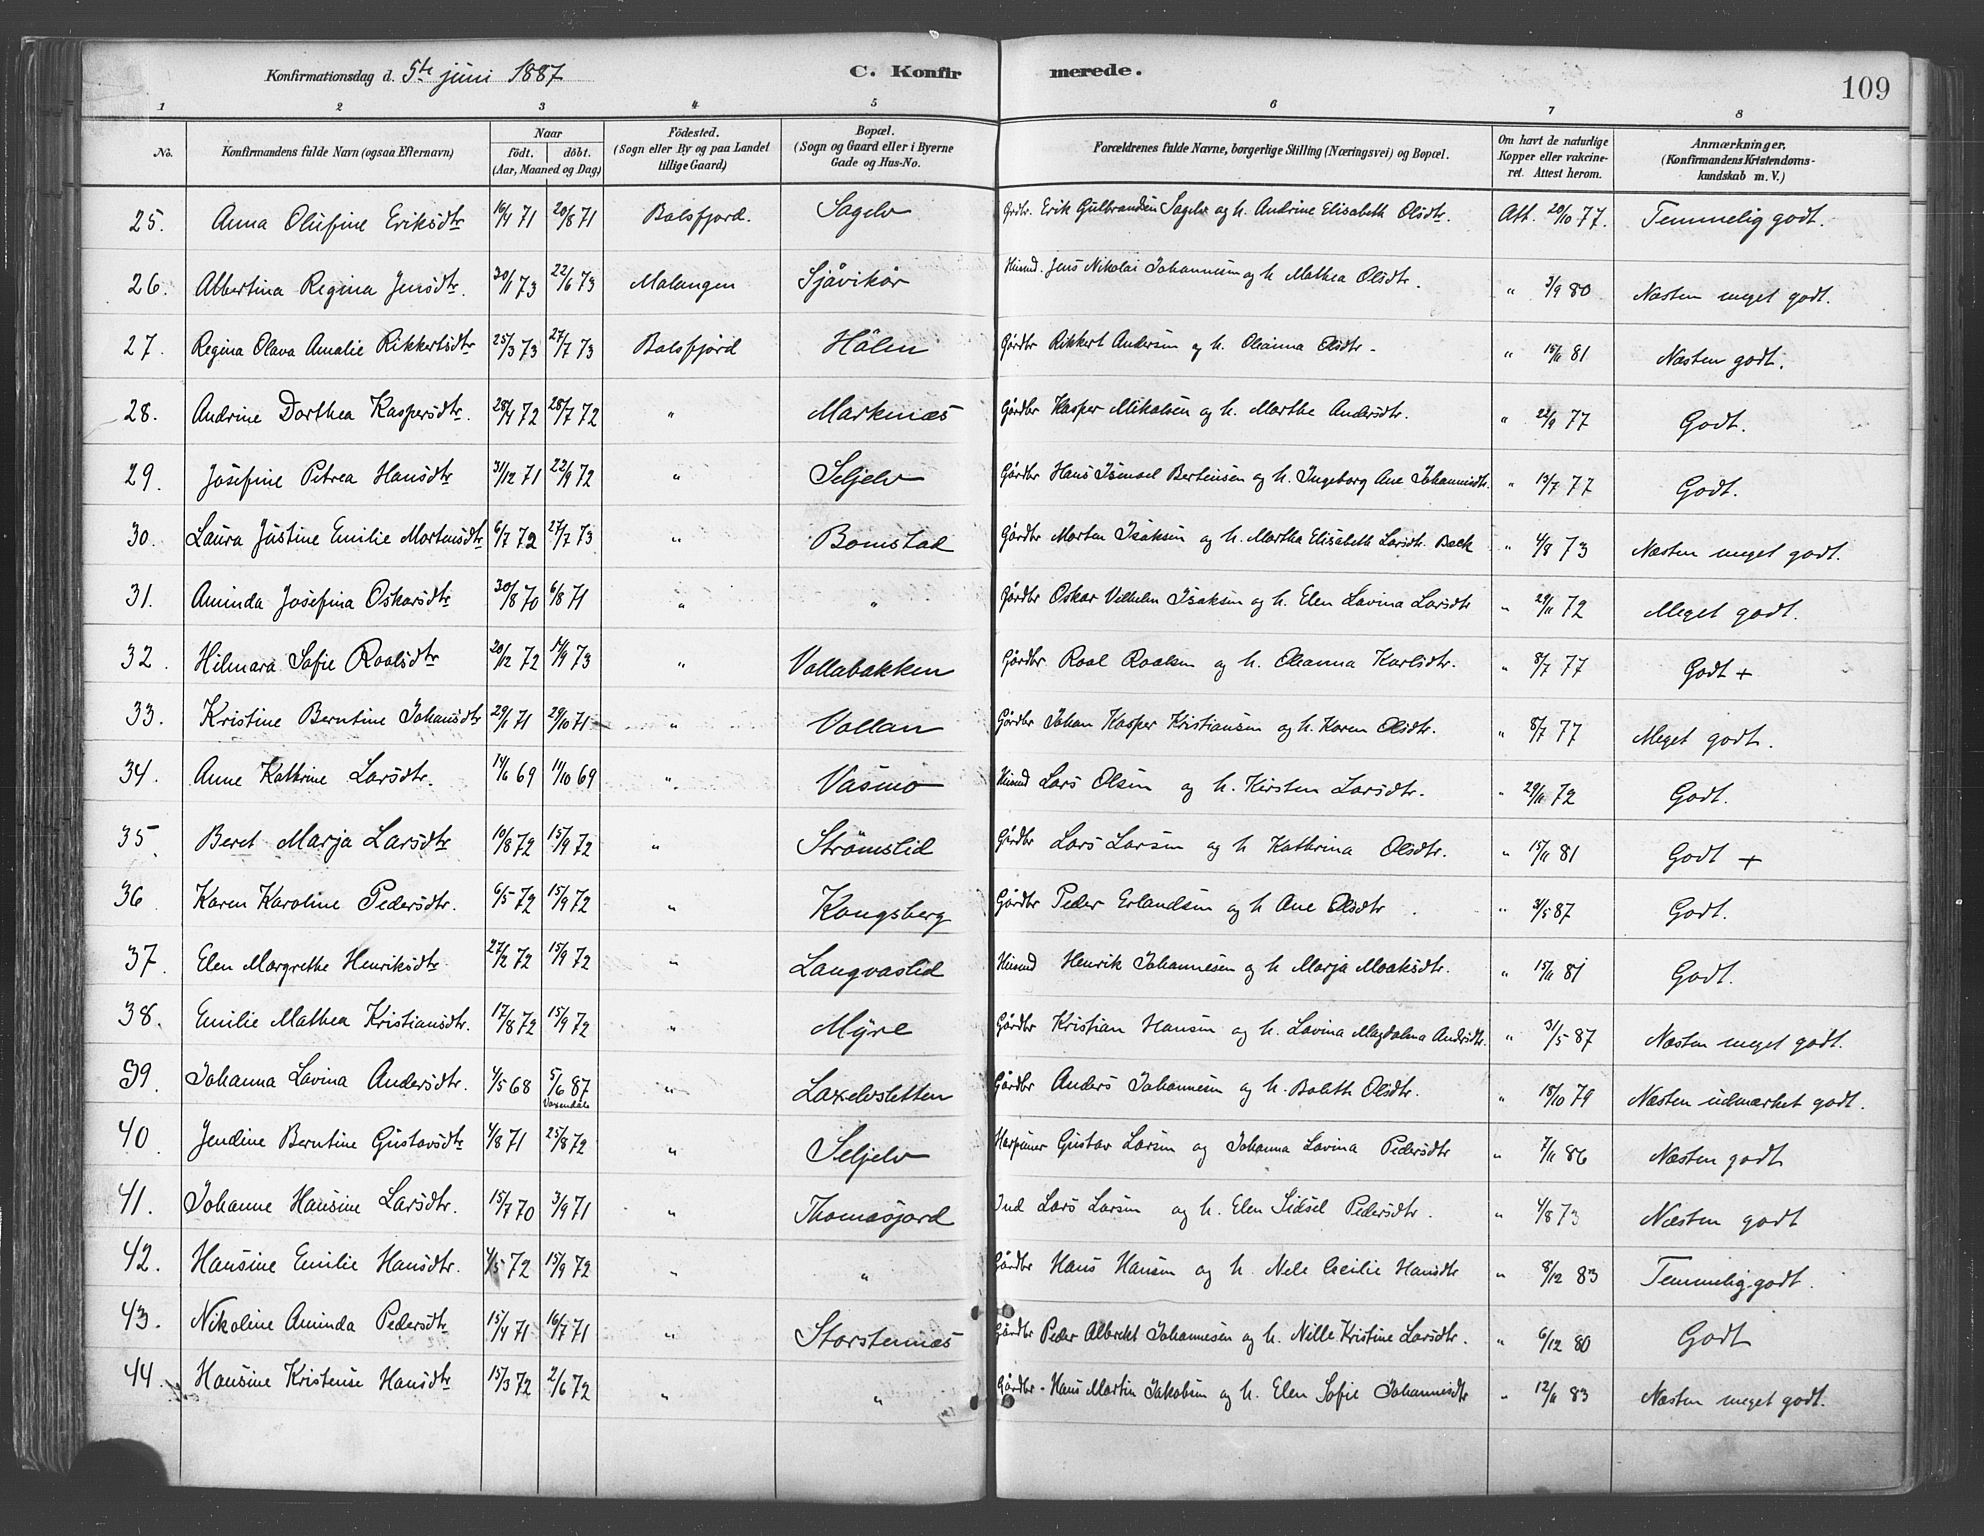 Konfirmationsdag d. 5te juni 1887 C. Konfirmerede. 109
1 2 3 4 5 6 7 8
No. Konfirmandens fulde Navn (ogsaa Efternavn) Naar født. døbt. (Aar, Maaned og Dag) Fødested. (Sogn eller By og paa Landet tillige Gaard) Bopæl. (Sogn og Gaard eller i Byerne Gade og Hus-No. Forældrenes fulde Navne, borgerlige Stilling (Næringsvei) og Bopæl. Om havt de naturlige Kopper eller vakcineret. Attest herom. Anmærkninger. (Konfirmandens Kristendomskundskab m. V.)
25. Anna Olufine Eriksdtr 16/4 71 20/8 71 Balsfjord. Sagelv Grdbr. Erik Gulbrandsen Sagelv og h. Andrine Elisabeth Olsdtr. Att. 20/10 77. Temmelig godt.
26. Albertina Regina Jensdtr. 30/1 73 22/6 73 Malangen Sjåvikør Husmd. Jens Nikolai Johannesen og h Mathea Olsdtr. " 3/9 80 Næsten meget godt.
27. Regina Olava Amalie Rikkertsdtr 25/3 73 27/7 73 Balsfjord Hølen Gårdbr Rikkert Andersen og h. Oleanna Olsdtr - " 15/11 81 Næsten godt.
28. Andrine Dorthea Kaspersdtr. 28/4 72 28/7 72 " Markenæs Gårdbr Kasper Mikalsen og h. Marthe Andersdtr. " 22/9 77 Godt.
29. Josefine Petrea Hansdtr 31/12 71 22/9 72 " Seljelv Gårdbr Hans Ismsel Berteusen og h. Ingeborg Ane Johannesdtr. " 13/7 77 Godt.
30. Laura Justine Emilie Mortensdtr 6/7 72 27/7 73 " Bomstad Gårdbr Morten Isaksen og h. Martha Elisabeth Larsdtr. Beck " 4/8 73 Næsten meget godt.
31. Aminda Josefina Oskarsdtr 30/8 70 6/8 71 " " Gårdbr Oskar Vilhelm Isaksen og h. Elen Lavina Larsdtr " 29/11 72 Meget godt.
32. Hilmara Sofie Roalsdtr 20/12 72 73 " Vollabakken Gårdbr. Roal Roalsen og h. Oleanna Karlsdtr. " 8/7 77 Godt +
33. Kristine Berntine Johansdtr 29/1 71 29/10 71 " Vollan Gårdbr Johan Kasper Kristiansen og h. Karen Olsdtr. " 8/7 77 Meget godt.
34. Anne Kathrine Larsdtr. 14/6 69 11/10 69 " Vasmo Husmd Lars Olsen og h. Kirsten Larsdtr. " 29/11 72 Godt.
35. Beret Marja Larsdtr 10/8 72 15/9 72 " Strømslid Gårdbr Lars Larsen og h Kathrina Olsdtr. " 15/11 81 Godt +
36. Karen Karoline Pedersdtr. 6/5 72 15/9 72 " Kongsberg Gårdbr Peder Erlandsen og h Ane Olsdtr " 31/5 87 Godt.
37. Elen Margrethe Henriksdtr 27/2 72 15/9 72 " Langvaslid Husmd Henrik Johannesen og h Marja Moaksdtr. " 15/11 81 Godt.
38. Emilie Mathea Kristiansdtr. 17/8 72 15/9 72 " Myre Gårdbr Kristian Hansen og h. Lavina Magdalena Andersdtr. " 31/5 87 Næsten meget godt.
39. Johanna Lavina Andersdtr. 4/5 68 5/6 87 Voxendåb " Laxelvsletten Gårdbr Anders Johannesen og h. Boleth Olsdtr. " 18/10 79 Næsten udmærket godt.
40 Jendine Berntine Gustavsdtr 4/8 71 25/8 72 " Seljelv Harpuner Gustav Larsen og Johanna Lavina Pedersdtr " 7/11 86 Næsten godt
41. Johanne Hansine Larsdtr. 15/7 70 3/9 71 " Thomasjord Ind Lars Larsen og h. Elen Sidsel Pedersdtr. " 4/8 73 Næsten godt
42. Hansine Emilie Hansdtr. 4/5 72 15/9 72 " " Gårdbr Hans Hansen og h. Nele Cecilie Hansdtr " 8/12 83 Temmelig godt.
43. Nikoline Aminda Pedersdtr 15/4 71 16/7 71 " Storstennæs Gårdbr Peder Albrekt Johannesen og h. Nille Kristine Larsdtr. " 6/12 80 Godt
44. Hansine Kristense Hansdtr 15/3 72 2/6 72 " " Gårdbr - Hans Martin Jakobsen og h. Elen Sofie Johannesdtr " 12/11 83 Næsten meget godt.